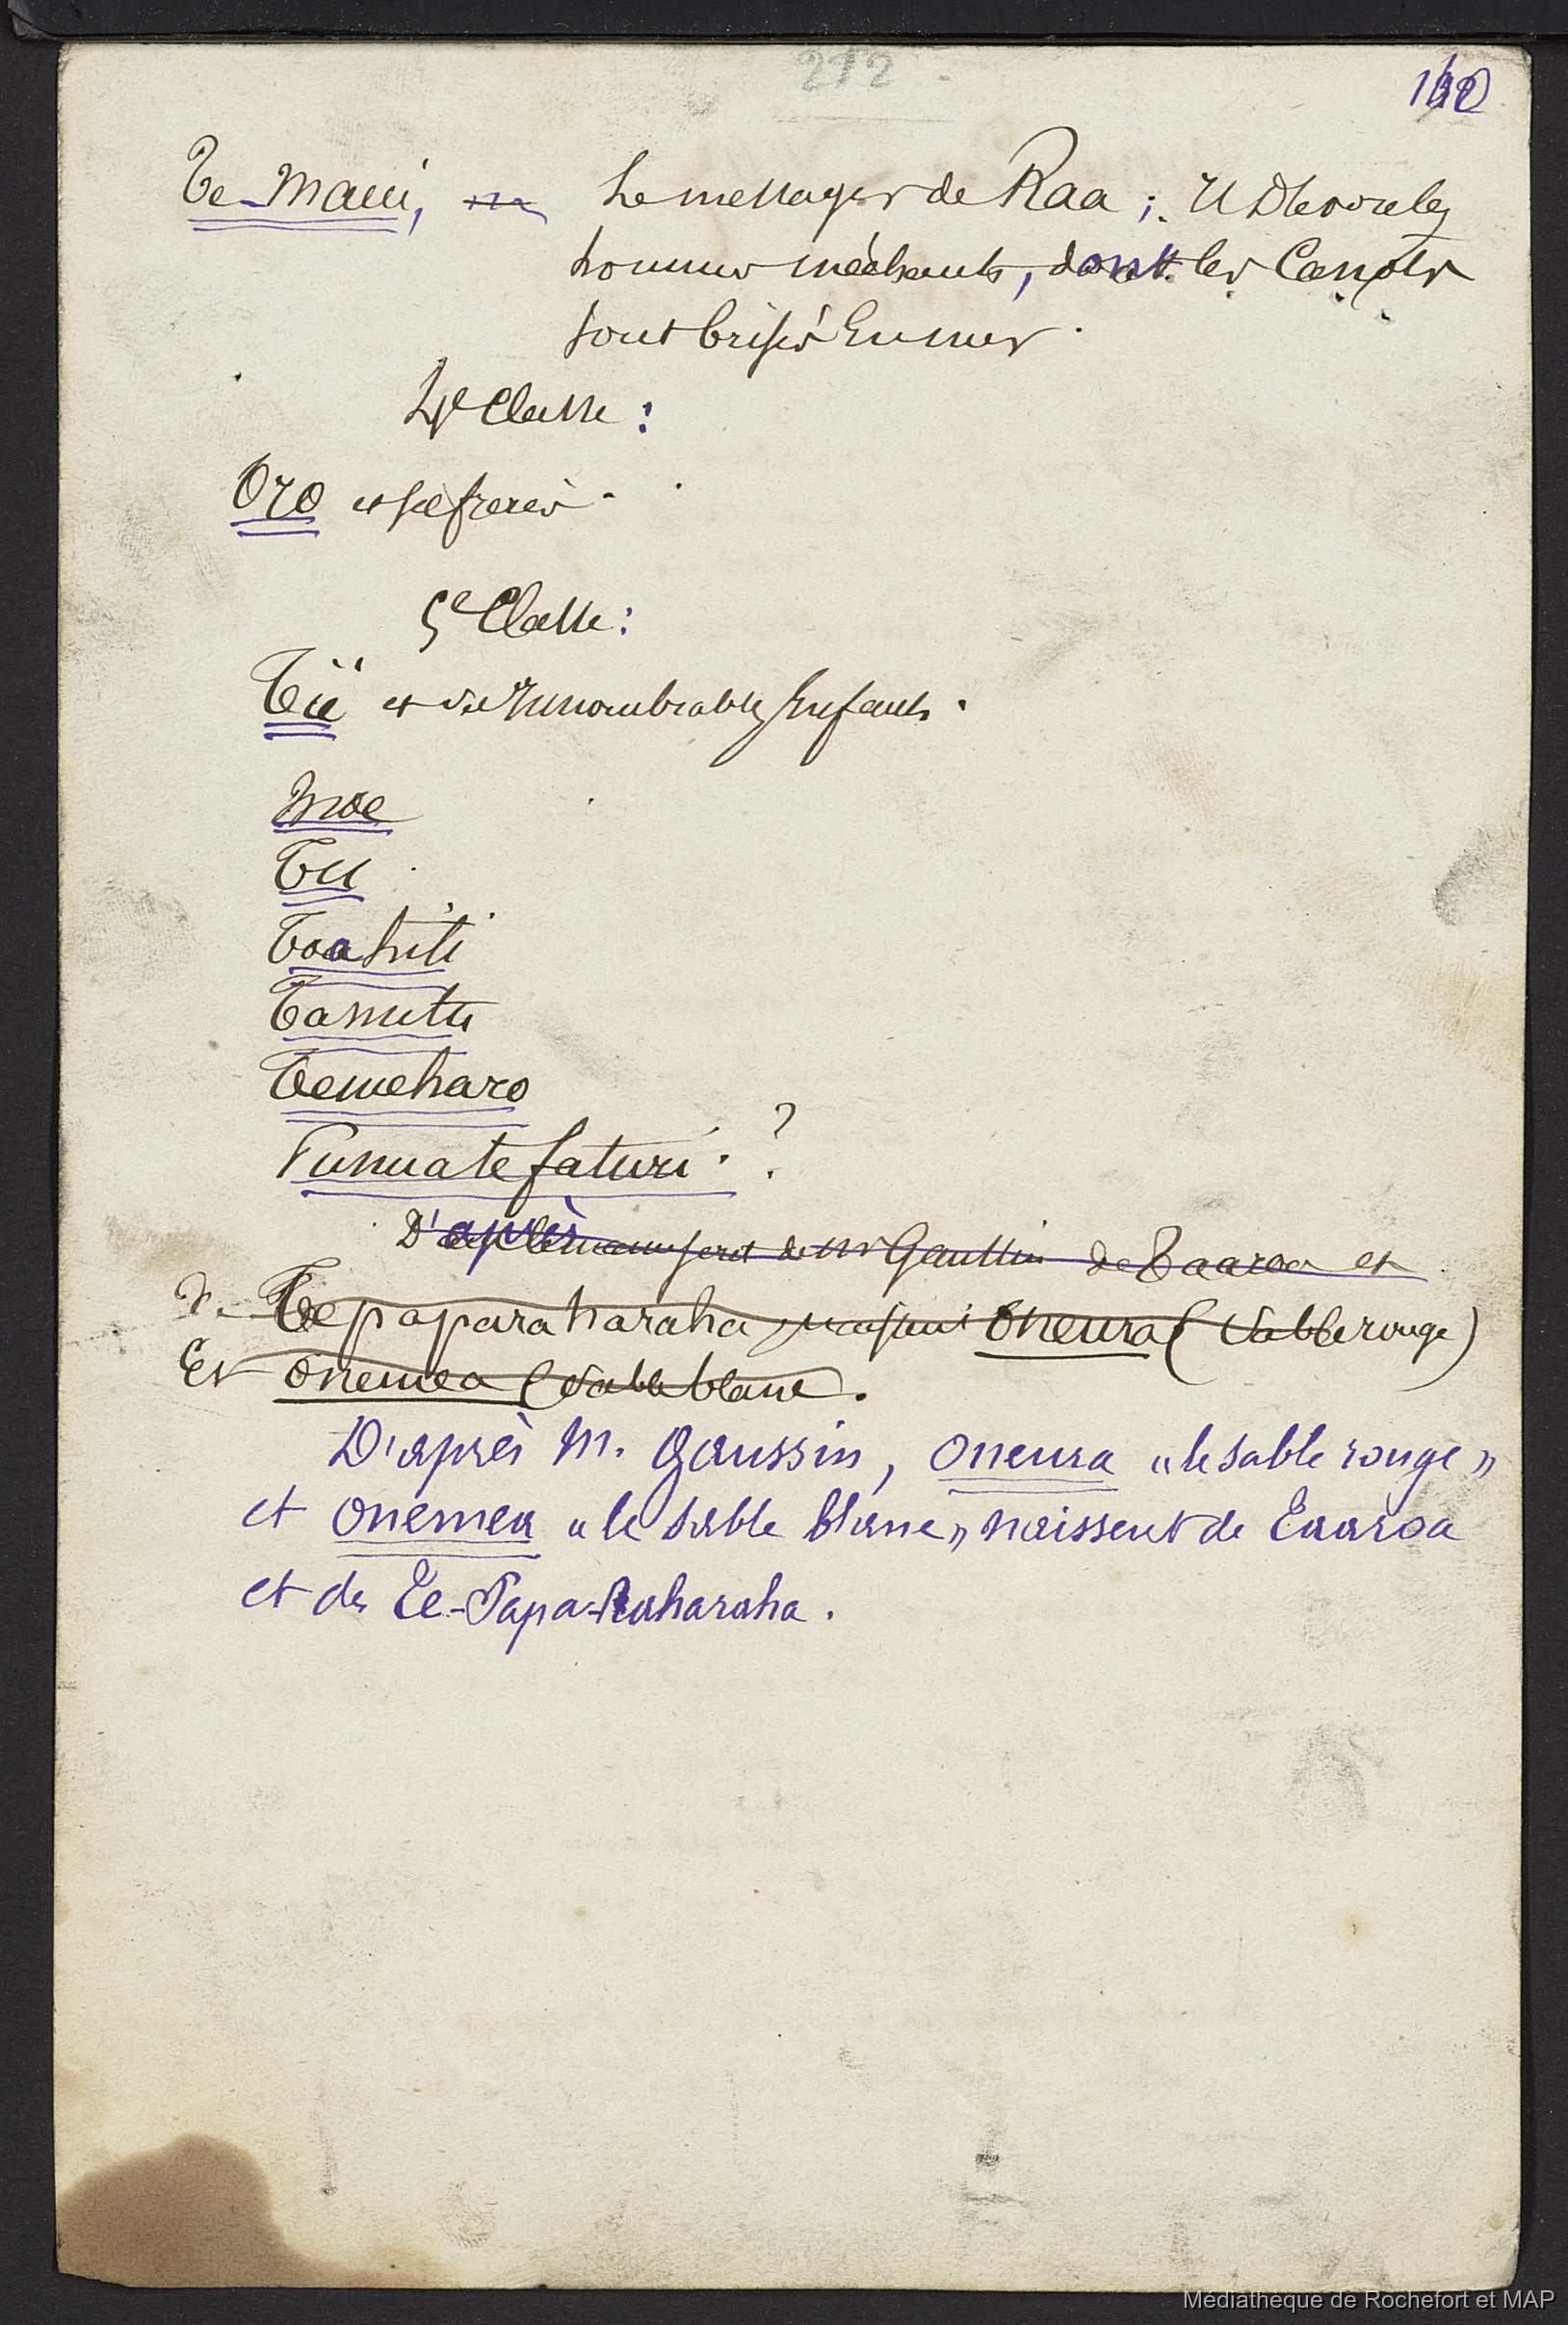 212
Te-Maui, Le messager de Raa; Il dévore les
hommes méchants, dont les Canots
sont brisés En mer.
4e Classe :
Oro et ses frères.
5e Classe :
Tii et ses Innombrables Enfants.
Moe
Tu
Toahiti
Tamutu
Temeharo
Punuatefaturi. ?
D'après le manuscrit de Mr Gaussin de Taaroa et
de Te papara haraha, naissent Oneura (Sable rouge)
Et onemea (Sable blanc).
D'après M. Gaussin, Oneura « le sable rouge »
et Onemea « le sable blanc » naissent de Taaroa
et de Te-Papa-Raharaha.
Médiathèque de Rochefort et MAP